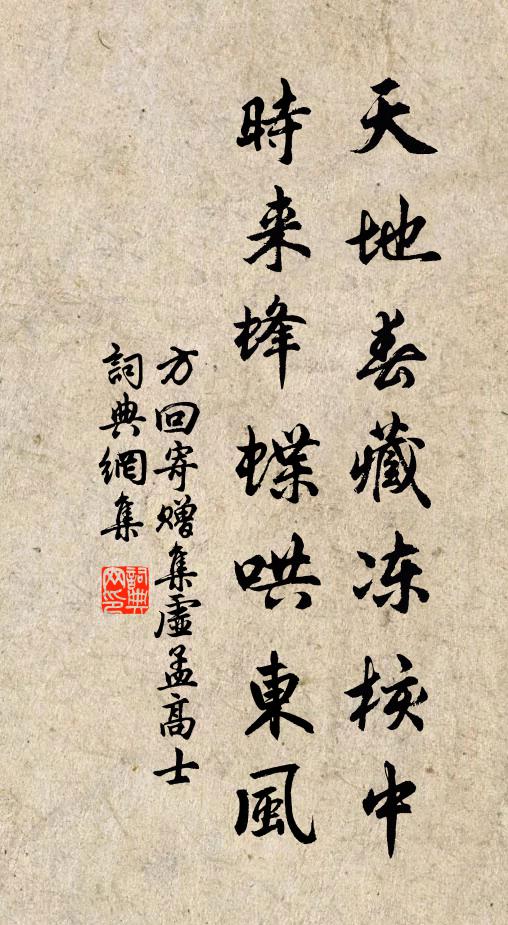 天地春藏冻核中
時来蜂蝶哄東風
方回寄赠集虛孟高士
詞典網集
詞典網印